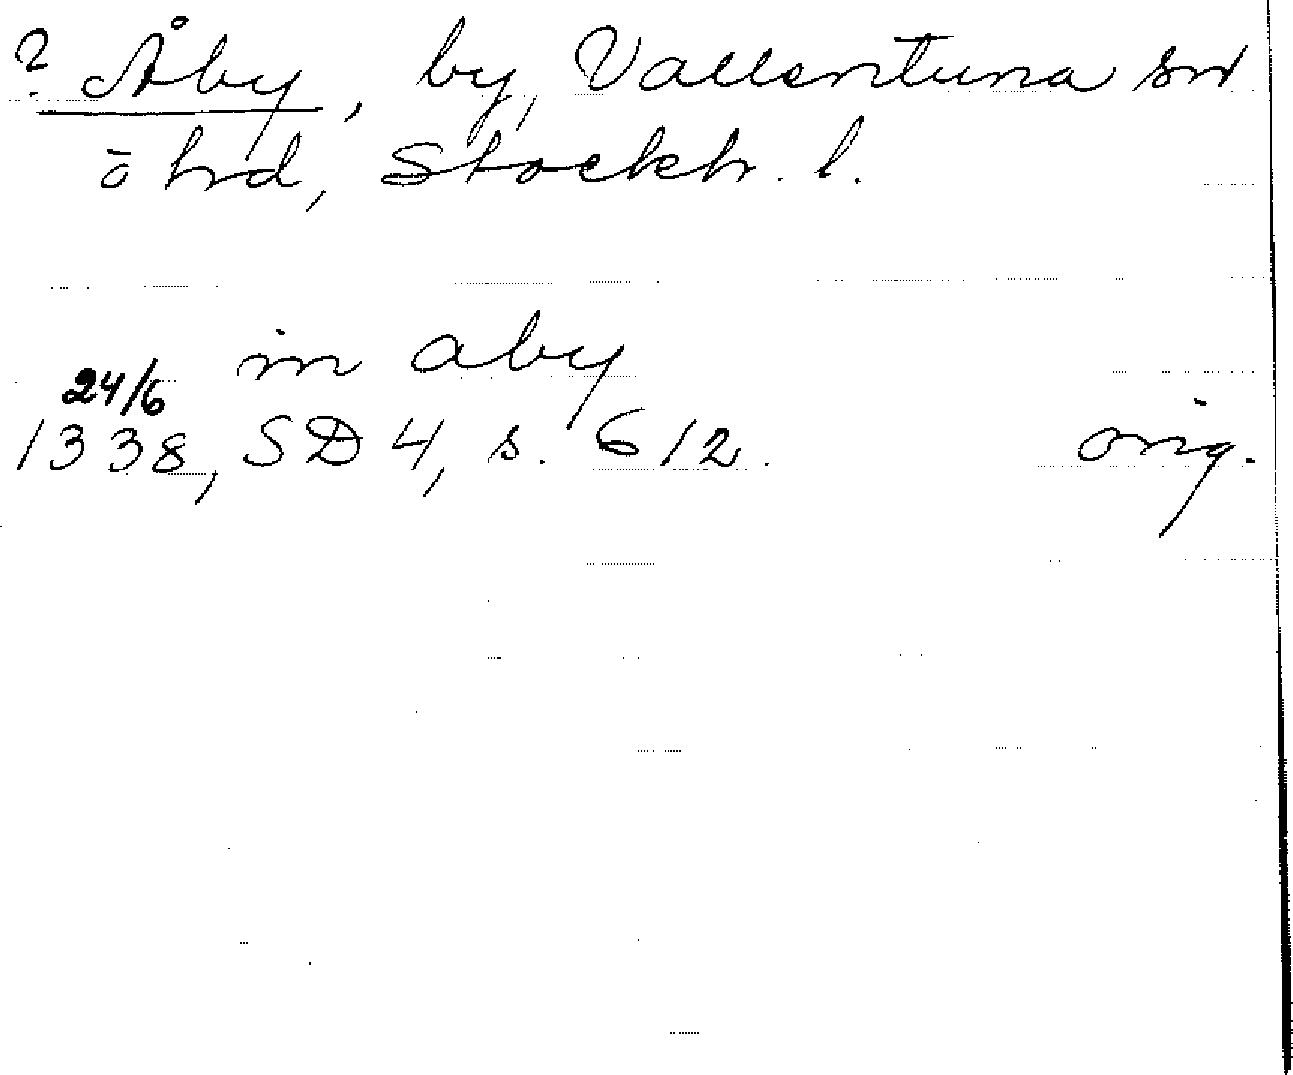 ? Åby, by, Vallentuna sn
o hrd, Stockh. l.
in aby
24/6
1338, SD 4, s. 612. orig.